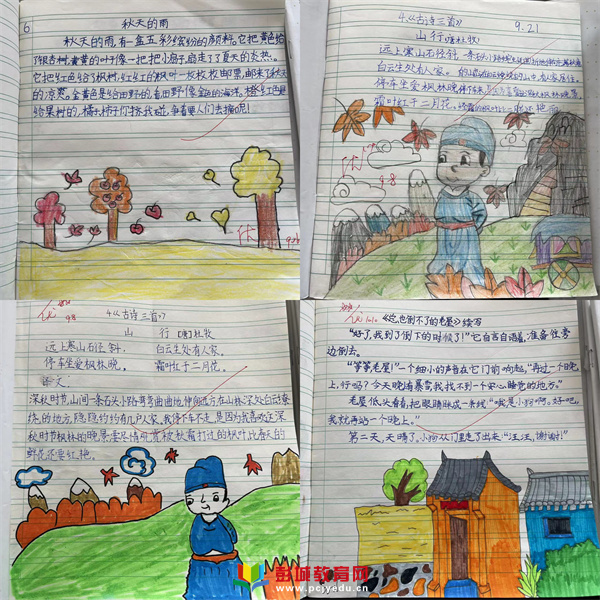 6
秋天的雨
秋天的雨,有一盒五彩缤纷的颜料。它把黄色给
了银杏树,黄黄的叶子像一把把小扇子,扇走了夏天的炎热。
它把红色给了枫树,红红的枫叶一枚枚邮票,邮来了秋天
的凉爽。金黄色是给田野的,看田野像金色的海洋。橙红色是
给果树的,橘子柿子你挤我碰,争着要人们去摘呢!
4.《古诗三首》
9.21
山行 唐 杜牧
远上寒山石径斜,
白云生处有人家。
停车坐爱枫林晚,
霜叶红于二月花。
优
98
优
98
4《古诗三首》
山 行 [唐]杜牧
远上寒山石径斜, 白云生处有人家。
停车坐爱枫林晚, 霜叶红于二月花。
译文:
深秋时节,山间一条石头小路弯弯曲曲地伸向远方在山林深处白云缭
绕的地方,隐隐约约有几户人家。我停下车不走,是因为我喜欢这深
秋时节枫林的晚景
被秋霜打过的枫叶比春天的
鲜花还要红艳。
优
《总也倒不了的老屋》续写
“好了,我到了倒下的时候了!”它自言自语着,准备往旁
边倒去。
“等等,老屋!”一个细小的声音在它门前响起,“再过一个晚
上,行吗?今天晚上有暴雪,我找不到一个安心睡觉的地方。”
老屋低头看看,把眼睛眯成一条线“哦是小狗啊。好吧,
我就再站一个晚上。”
第二天,天晴了,小狗从门里走了出来“汪汪,谢谢!”
彭城教育网
www.pcjyedu.cn